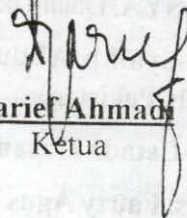 arief Ahmadi
Ketua